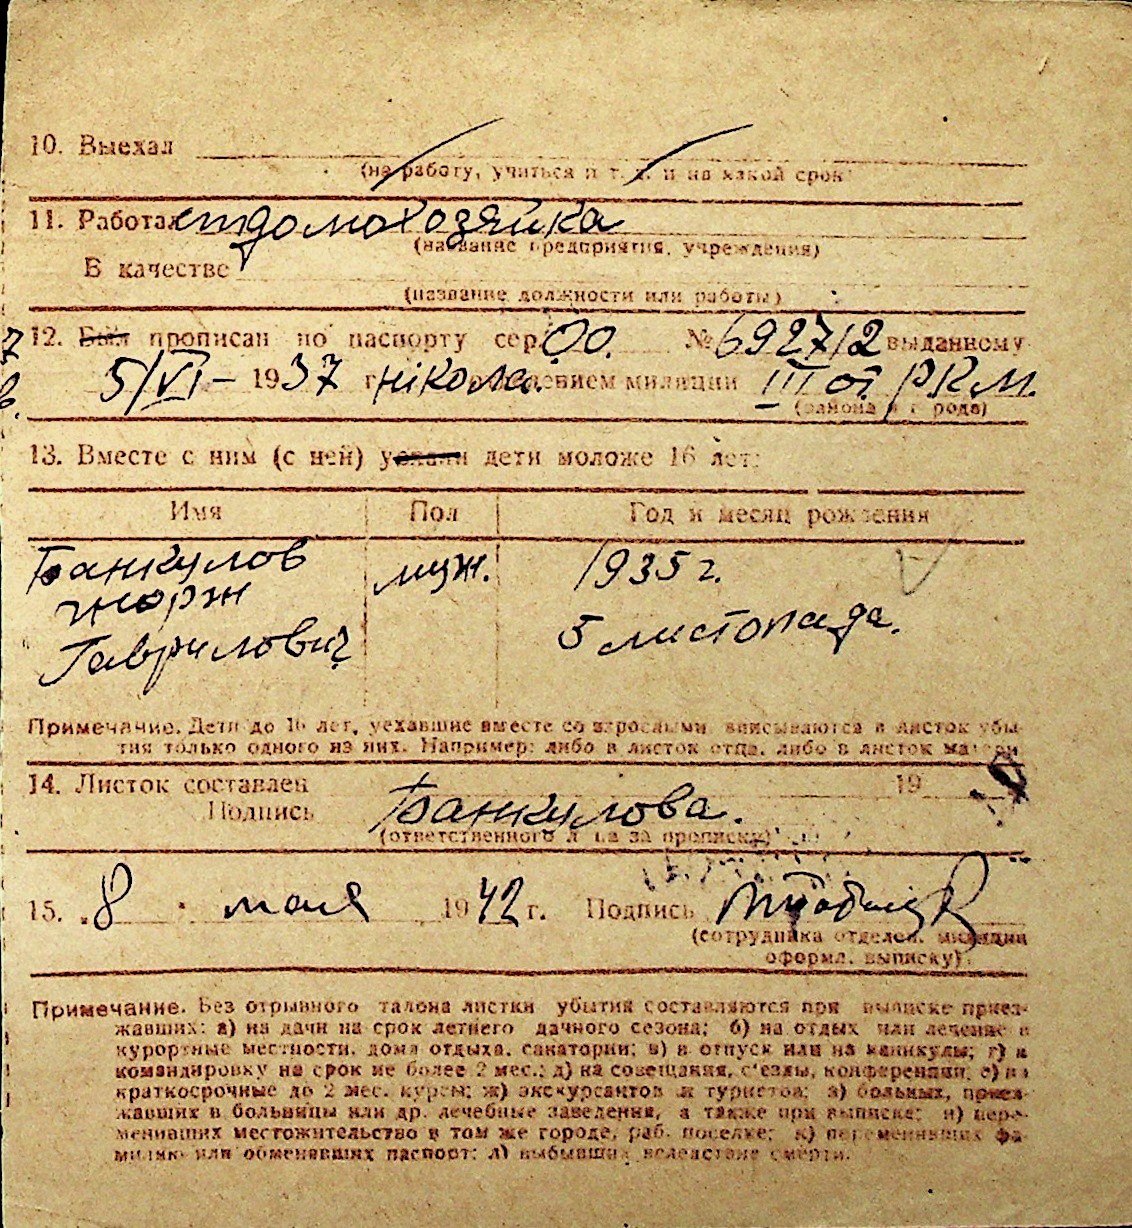 10. Выехал
(на работу, учиться и т. д. и на какой срок)
11. Работает домохозяйка
(название предприятия, учреждения)
В качестве
(название должности или работы)
12. Был прописан по паспорту сер. ОО. № 692712 выданному
5/VI – 1937 г. Никола. отделением милиции III от. РКМ.
(района и города)
13. Вместе с ним (с ней) уехали дети моложе 16 лет:
Имя Пол Год и месяц рождения
Банкулов муж. 1935 г.
Жорж
Гаврилович 5 листопада.
Примечание. Дети до 16 лет, уехавшие вместе со взрослыми, вписываются в листок убы-
тия только одного из них. Например: либо в листок отца, либо в листок матери
14. Листок составлен 19
Подпись Банкулова.
(ответственного лица за прописку)
15. 8 мая 1942 г. Подпись
(сотрудника отделен. милиции
оформл. выписку).
Примечание. Без отрывного талона листки убытия составляются при выписке приез-
жавших: а) на дачи на срок летнего дачного сезона; б) на отдых или лечение в
курортные местности, дома отдыха, санатории; в) в отпуск или на каникулы; г) в
командировку на срок не более 2 мес.; д) на совещания, с'езды, конференции; е) на
краткосрочные до 2 мес. курсы; ж) экскурсантов и туристов; з) больных, приез-
жавших в больницы или др. лечебные заведения, а также при выписке: и) пере-
менивших местожительство в том же городе, раб. поселке; к) переменивших фа-
милию или обменявших паспорт; л) выбывших вследствие смерти.